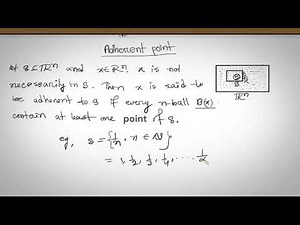 Adherent point
let S ⊆ ℝⁿ and x ∈ ℝⁿ, x is not
necessarily in S. Then x is said to
be adherent to S if every n-ball B(x)
contain at least one point of S.
S
ℝⁿ
eg, S = {1/n, n ∈ N}
= 1, 1/2, 1/3, 1/4, ..... 1/α